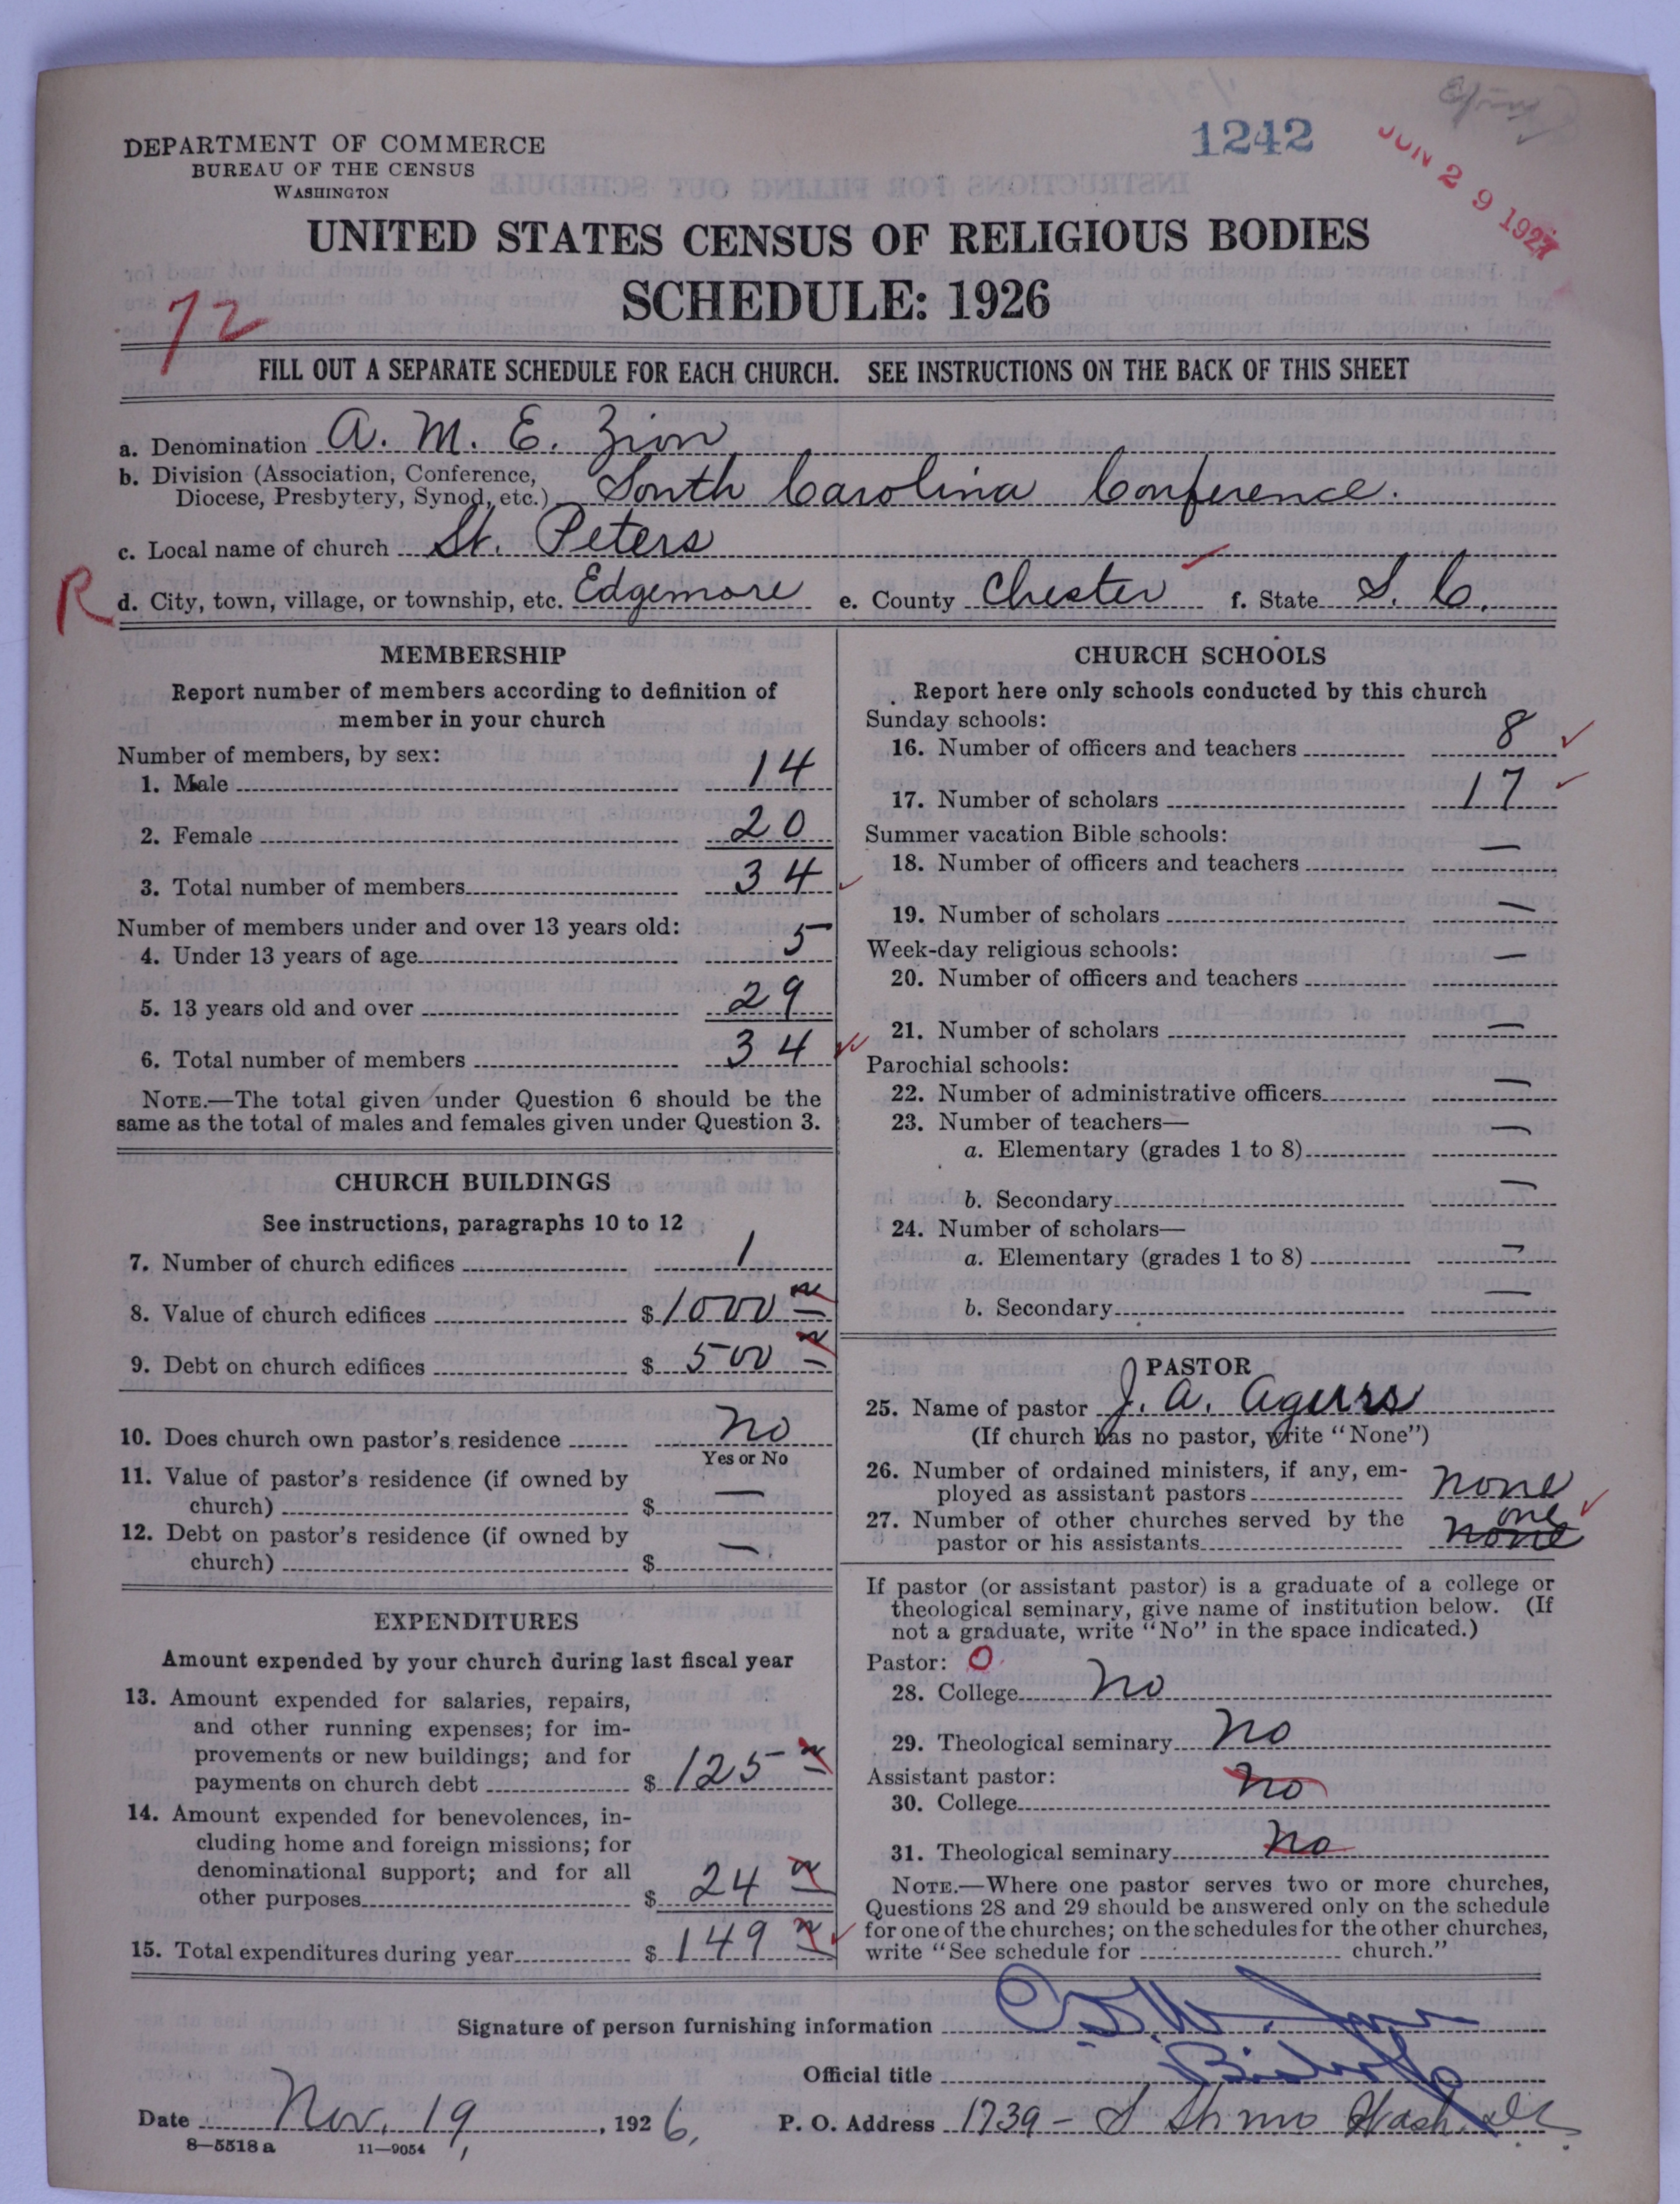 1242
JUN 29 1927
DEPARTMENT OF COMMERCE
BUREAU OF THE CENSUS
WASHINGTON
UNITED STATES CENSUS OF RELIGIOUS BODIES
SCHEDULE: 1926
72
FILL OUT A SEPARATE SCHEDULE FOR EACH CHURCH. SEE INSTRUCTIONS ON THE BACK OF THIS SHEET
a. Denomination A. M. E. Zion
b. Division (Association, Conference,
Diocese, Presbytery, Synod, etc.) South Carolina Conference.
c. Local name of church St. Peters
R
d. City, town, village, or township, etc. Edgemore e. County Chester f. State S. C.
MEMBERSHIP
Report number of members according to definition of
member in your church
Number of members, by sex:
1. Male 14
2. Female 20
3. Total number of members 34
Number of members under and over 13 years old:
4. Under 13 years of age 5
5. 13 years old and over 29
6. Total number of members 34
NOTE.—The total given under Question 6 should be the
same as the total of males and females given under Question 3.
CHURCH BUILDINGS
See instructions, paragraphs 10 to 12
7. Number of church edifices 1
8. Value of church edifices $ 1000
9. Debt on church edifices $ 500
10. Does church own pastor's residence No
Yes or No
11. Value of pastor's residence (if owned by
church) $ —
12. Debt on pastor's residence (if owned by
church) $ —
EXPENDITURES
Amount expended by your church during last fiscal year
13. Amount expended for salaries, repairs,
and other running expenses; for im-
provements or new buildings; and for
payments on church debt $ 125
14. Amount expended for benevolences, in-
cluding home and foreign missions; for
denominational support; and for all
other purposes $ 24
15. Total expenditures during year $ 149
CHURCH SCHOOLS
Report here only schools conducted by this church
Sunday schools:
16. Number of officers and teachers 8
17. Number of scholars 17
Summer vacation Bible schools:
18. Number of officers and teachers —
19. Number of scholars —
Week-day religious schools:
20. Number of officers and teachers —
21. Number of scholars —
Parochial schools:
22. Number of administrative officers —
23. Number of teachers—
a. Elementary (grades 1 to 8) —
b. Secondary —
24. Number of scholars—
a. Elementary (grades 1 to 8) —
b. Secondary —
PASTOR
25. Name of pastor J. A. Agurs
(If church has no pastor, write "None")
26. Number of ordained ministers, if any, em-
ployed as assistant pastors None
27. Number of other churches served by the one
pastor or his assistants None
If pastor (or assistant pastor) is a graduate of a college or
theological seminary, give name of institution below. (If
not a graduate, write "No" in the space indicated.)
Pastor: O
28. College No
29. Theological seminary No
Assistant pastor:
30. College No
31. Theological seminary No
NOTE.—Where one pastor serves two or more churches,
Questions 28 and 29 should be answered only on the schedule
for one of the churches; on the schedules for the other churches,
write "See schedule for church."
Signature of person furnishing information
Official title Bishop
Date Nov. 19, 1926, P. O. Address 1739 - S Wash. DC
8—5518 a 11—9054